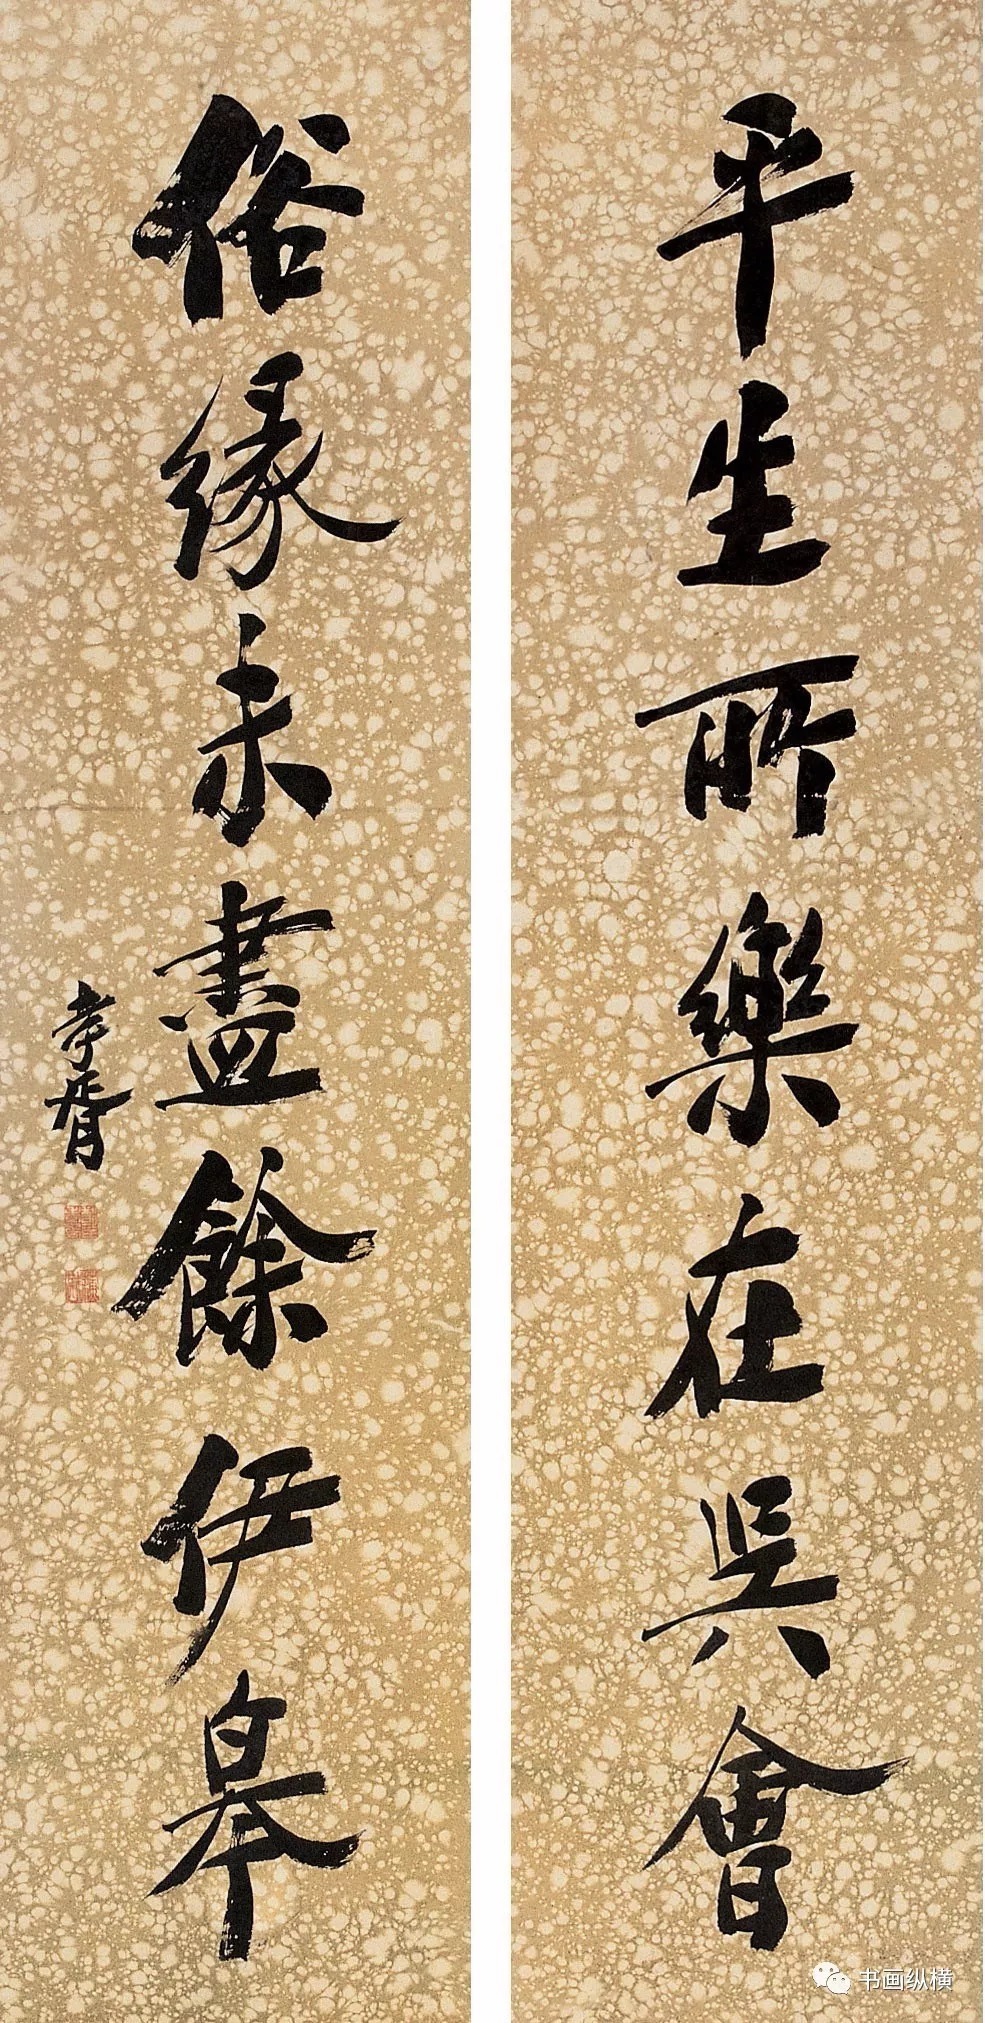 平生所樂在吳會
俗緣未盡餘伊皋
孝胥
书画纵横